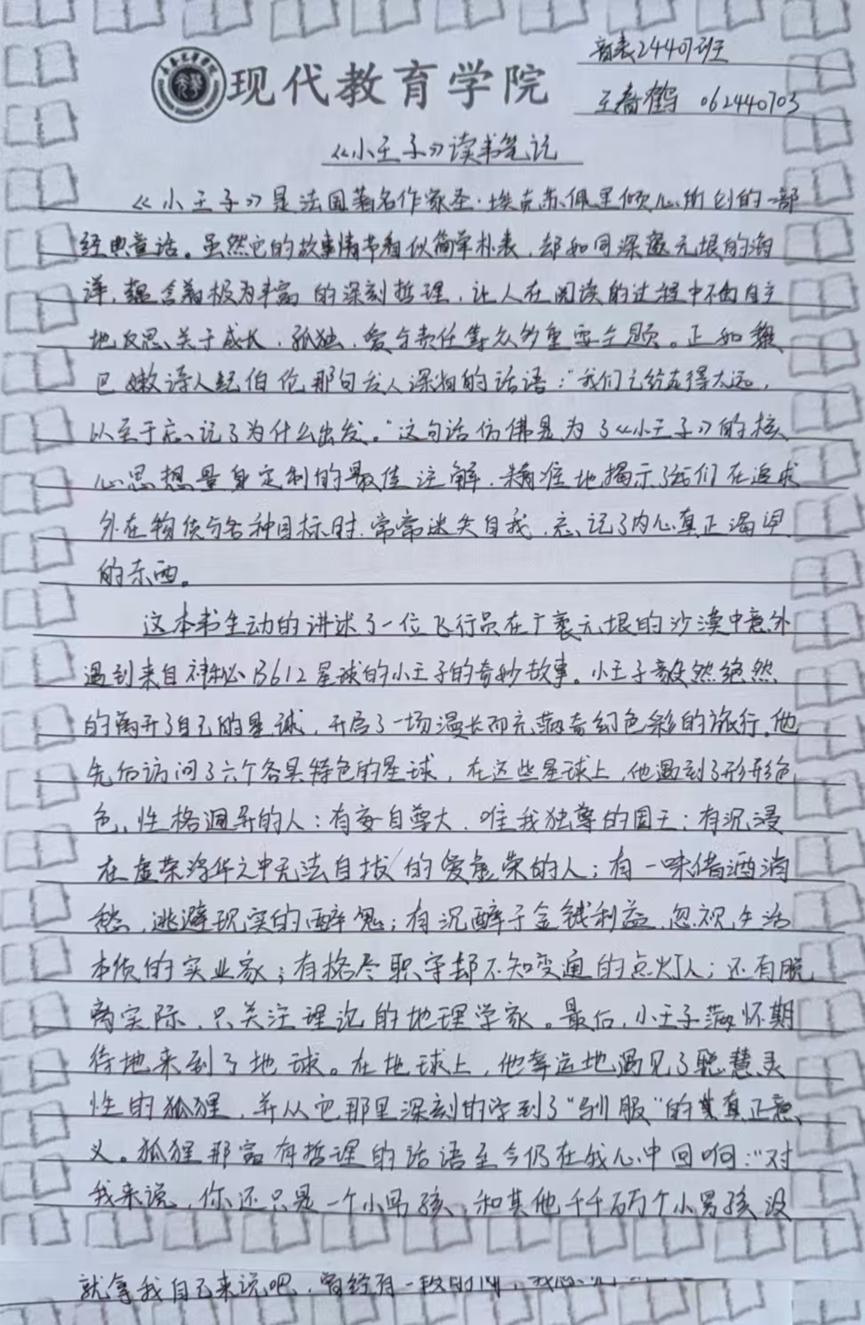 2440班
现代教育学院
王春鹤 062440703
《小王子》读书笔记
《小王子》是法国著名作家圣·埃克苏佩里倾心所创的一部
经典童话。虽然它的故事情节看似简单朴素,却如同深邃无垠的海
洋,蕴含着极为丰富的深刻哲理,让人在阅读的过程中不由自主
地反思关于成长、孤独、爱与责任等众多重要主题。正如黎
巴嫩诗人纪伯伦那句发人深省的话语:"我们已经走得太远,
以至于忘记了为什么出发。"这句话仿佛是为了《小王子》的核
心思想量身定制的最佳注解,精准地揭示了我们在追求
外在物质与各种目标时,常常迷失自我,忘记了内心真正渴望
的东西。
这本书生动的讲述了一位飞行员在广袤无垠的沙漠中意外
遇到来自神秘B612星球的小王子的奇妙故事。小王子毅然绝然
的离开了自己的星球,开启了一场漫长而充满奇幻色彩的旅行,他
先后访问了六个各具特色的星球,在这些星球上,他遇到了形形色
色,性格迥异的人:有妄自尊大、唯我独尊的国王;有沉浸
在虚荣浮华之中无法自拔的爱虚荣的人;有一味借酒消
愁,逃避现实的醉鬼;有沉醉于金钱利益,忽视生活
本质的实业家;有恪尽职守却不知变通的点灯人;还有脱
离实际,只关注理论的地理学家。最后,小王子满怀期
待地来到了地球。在地球上,他幸运地遇见了聪慧灵
性的狐狸,并从它那里深刻的学到了"驯服"的真正意
义。狐狸那富有哲理的话语至今仍在我心中回响:"对
我来说,你还只是一个小男孩,和其他千千万万个小男孩没
就拿我自己来说吧,曾经有一段时间,我